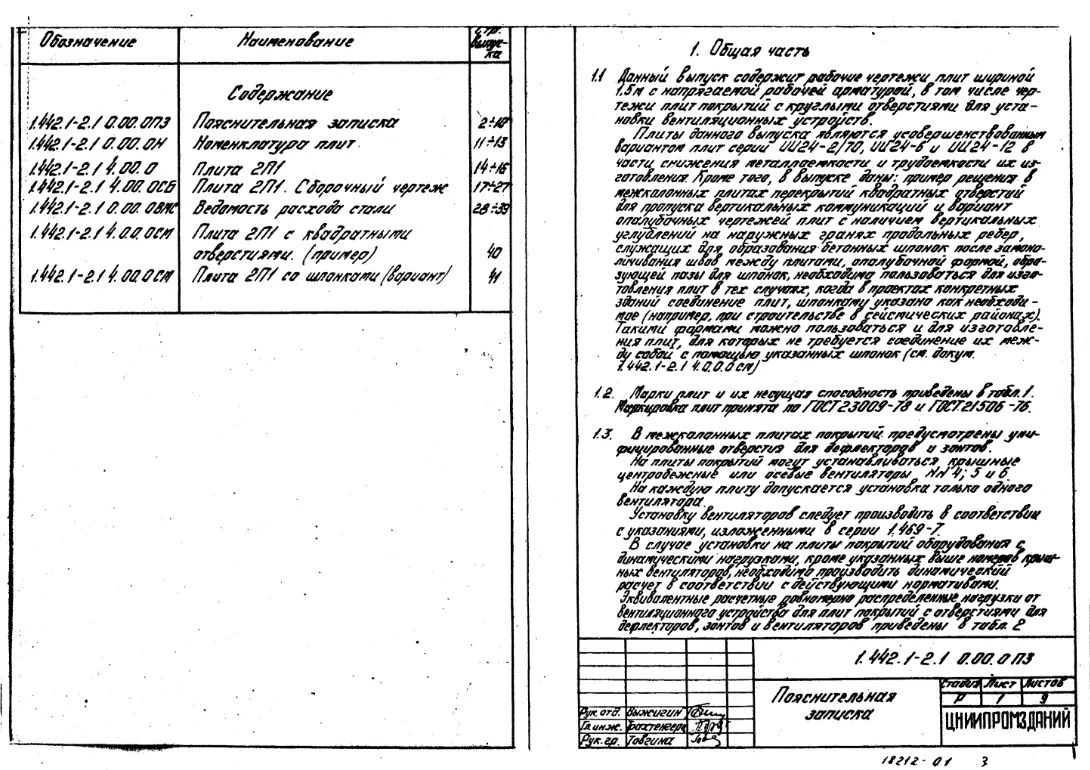 Обозначение Наименование Стр. выпус-ка
Содержание
1.442.1-2.1 0.00.0ПЗ Пояснительная записка 2÷10
1.442.1-2.1 0.00.0Н Номенклатура плит 11÷13
1.442.1-2.1 4.00.0 Плита 2П1 14÷16
1.442.1-2.1 4.00.0СБ Плита 2П1. Сборочный чертеж 17÷27
1.442.1-2.1 0.00.0ВМС Ведомость расхода стали 28÷39
1.442.1-2.1 4.0.0.0СМ Плита 2П1 с квадратными
отверстиями. (пример) 40
1.442.1-2.1 4.0.0.0СМ Плита 2П1 со шпонками (вариант) 41
1. Общая часть
1.1 Данный выпуск содержит рабочие чертежи плит шириной
1,5м с напрягаемой рабочей арматурой, в том числе чер-
тежи плит покрытий с круглыми отверстиями для уста-
новки вентиляционных устройств.
Плиты данного выпуска являются усовершенствованным
вариантом плит серии ИИ24-2/70, ИИ24-6 и ИИ24-12 в
части снижения металлоемкости и трудоемкости их из-
готовления. Кроме того, в выпуске даны: пример решения в
межколонных плитах перекрытий квадратных отверстий
для пропуска вертикальных коммуникаций и вариант
опалубочных чертежей плит с наличием вертикальных
углублений на наружных гранях продольных ребер,
служащих для образования бетонных шпонок после замоно-
личивания швов между плитами, опалубочной формой, обра-
зующей пазы для шпонок, необходимо пользоваться для изго-
товления плит в тех случаях, когда в проектах конкретных
зданий соединение плит, шпонками указано как необходи-
мое (например, при строительстве в сейсмических районах).
Такими формами можно пользоваться и для изготовле-
ния плит, для которых не требуется соединение их меж-
ду собой с помощью указанных шпонок (см. докум.
1.442.1-2.1 4.0.0.0 см)
1.2. Марки плит и их несущая способность приведены в табл.1.
Маркировка плит принята по ГОСТ 23009-78 и ГОСТ 21506-76.
1.3. В межколонных плитах покрытий предусмотрены уни-
фицированные отверстия для дефлекторов и зонтов.
На плиты покрытий могут устанавливаться крышные
центробежные или осевые вентиляторы NN 4; 5 и 6.
На каждую плиту допускается установка только одного
вентилятора.
Установку вентиляторов следует производить в соответствии
с указаниями, изложенными в серии 1.469-7.
В случае установки на плиты покрытий оборудования с
динамическими нагрузками, кроме указанных выше номеров крыш-
ных вентиляторов, необходимо производить динамический
расчет в соответствии с действующими нормативами.
Эквивалентные расчетные равномерно распределенные нагрузки от
вентиляционного устройства для плит покрытий с отверстиями для
дефлекторов, зонтов и вентиляторов приведены в табл. 2
1.442.1-2.1 0.00.0ПЗ
Пояснительная
записка
Стадия Лист Листов
Р 1 9
ЦНИИПРОМЗДАНИЙ
Рук. отд. Выжигин
Гл. инж.
Рук. гр. Товгина
18212-01 3